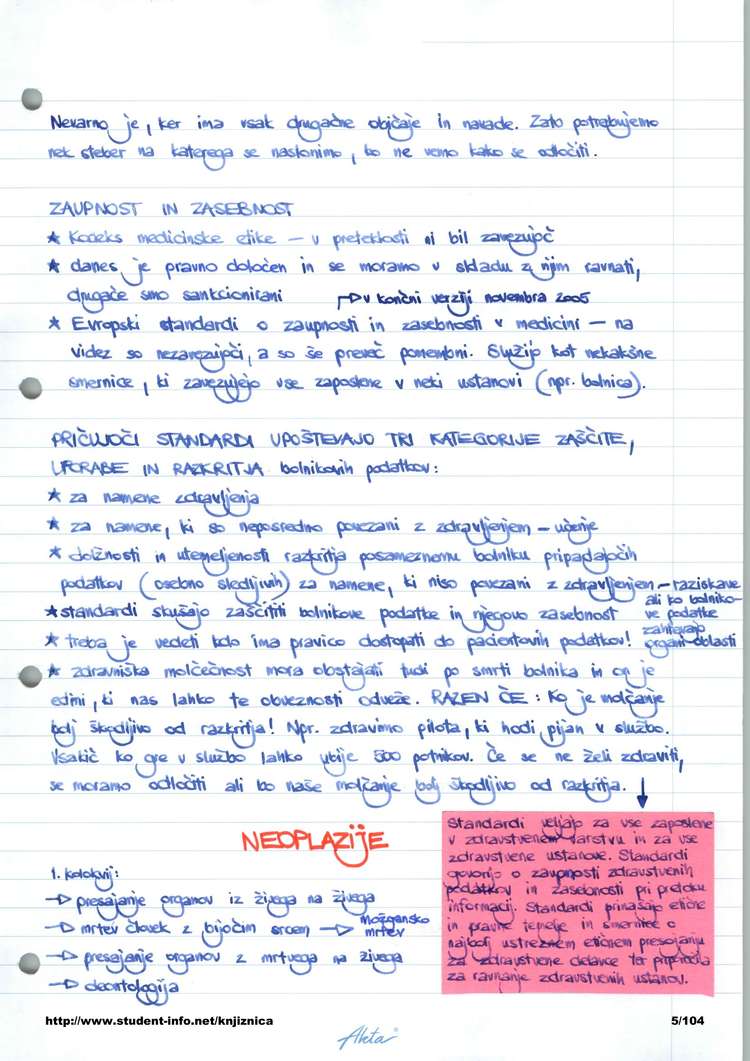 Nevarno je, ker ima vsak drugačne običaje in navade. Zato potrebujemo
nek steber na katerega se naslonimo, ko ne vemo kako se odločiti.
ZAUPNOST IN ZASEBNOST
* Kodeks medicinske etike – v preteklosti ni bil zavezujoč
* danes je pravno določen in se moramo v skladu z njim ravnati,
drugače smo sankcionirani → v končni verziji novembra 2005
* Evropski standardi o zaupnosti in zasebnosti v medicini – na
videz so nezavezujoči, a so še preveč pomembni. Služijo kot nekakšne
smernice, ki zavezujejo vse zaposlene v neki ustanovi (npr. bolnica).
PRIČUJOČI STANDARDI UPOŠTEVAJO TRI KATEGORIJE ZAŠČITE,
UPORABE IN RAZKRITJA bolnikovih podatkov:
* za namene zdravljenja
* za namene, ki so neposredno povezani z zdravljenjem – učenje
* dolžnosti in utemeljenosti razkritja posameznemu bolniku pripadajočih
podatkov (osebno sledljivih) za namene, ki niso povezani z zdravljenjem – raziskave
ali ko bolniko-
ve podatke
zahtevajo
organi oblasti
* standardi skušajo zaščititi bolnikove podatke in njegovo zasebnost
* treba je vedeti kdo ima pravico dostopati do pacientovih podatkov!
* zdravniška molčečnost mora obstajati tudi po smrti bolnika in on je
edini, ki nas lahko te obveznosti odveže. RAZEN ČE: Ko je molčanje
bolj škodljivo od razkritja! Npr. zdravimo pilota, ki hodi pijan v službo.
Vsakič ko gre v službo lahko ubije 500 potnikov. Če se ne želi zdraviti,
se moramo odločiti ali bo naše molčanje bolj škodljivo od razkritja. ↓
NEOPLAZIJE
1. kolokvij:
→ presajanje organov iz živega na živega
→ mrtev človek z bijočim srcem → možgansko
mrtev
→ presajanje organov z mrtvega na živega
→ deontologija
Standardi veljajo za vse zaposlene
v zdravstvenem varstvu in za vse
zdravstvene ustanove. Standardi
govorijo o zaupnosti zdravstvenih
podatkov in zasebnosti pri pretoku
informacij. Standardi prinašajo etične
in pravne temelje in smernice o
najbolj ustreznem etičnem presojanju
za zdravstvene delavce ter priporočila
za ravnanje zdravstvenih ustanov.
http://www.student-info.net/knjiznica
5/104
Akta